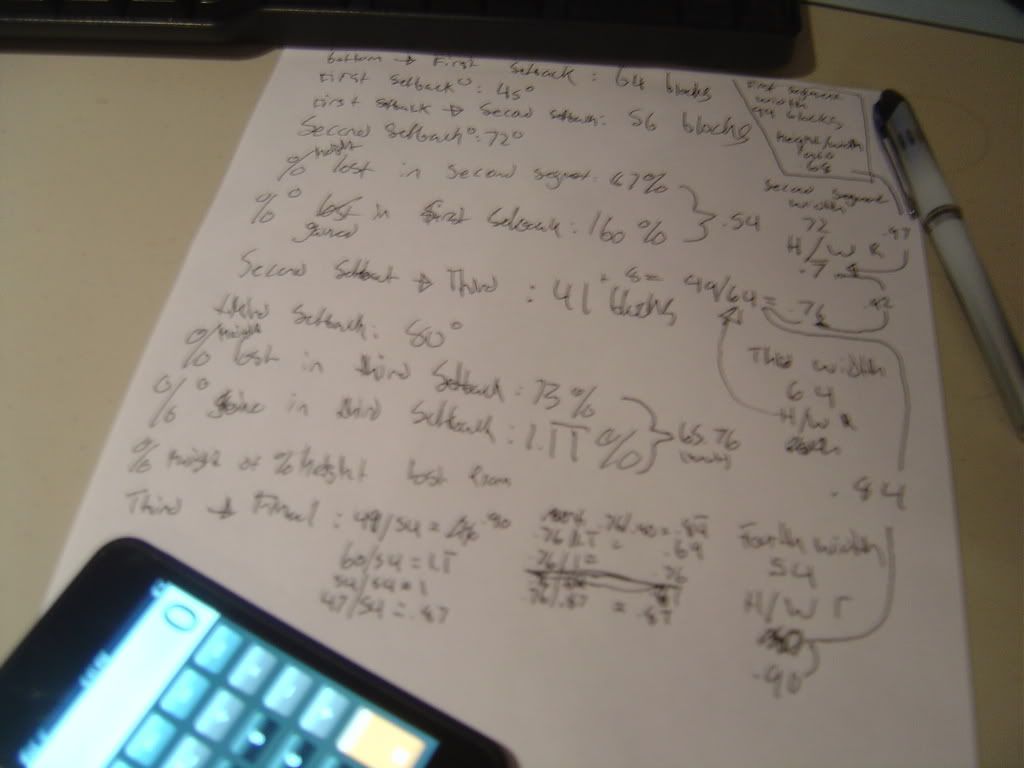 bottom → First Setback : 64 blocks
First Setback° : 45°
First setback → Second setback: 56 blocks
Second Setback° : 72°
% height lost in second segment: 87%
% ° lost in first Setback : 160 %
gained
} .54
Second Setback → Third : 41 + 8 = 49/64 = .76
blocks
Third Setback : 80°
% height lost in third Setback : 73%
% ° gaine in third Setback : 1.11 %
} 65.76
% height of % height lost from
Third → Final : 49/54 = .90
60/54 = 1.1
54/54 = 1
47/54 = .87
.76/.90 = .84
.76/1.1 = .69
.76/1 = .76
.76/.87 = .87
First segment
width
94 blocks
Height/width
ratio
.68
Second Segment
width
72
H/W R
.7
.97
.92
Third width
64
H/W R
.84
Fourth width
54
H/W r
.90